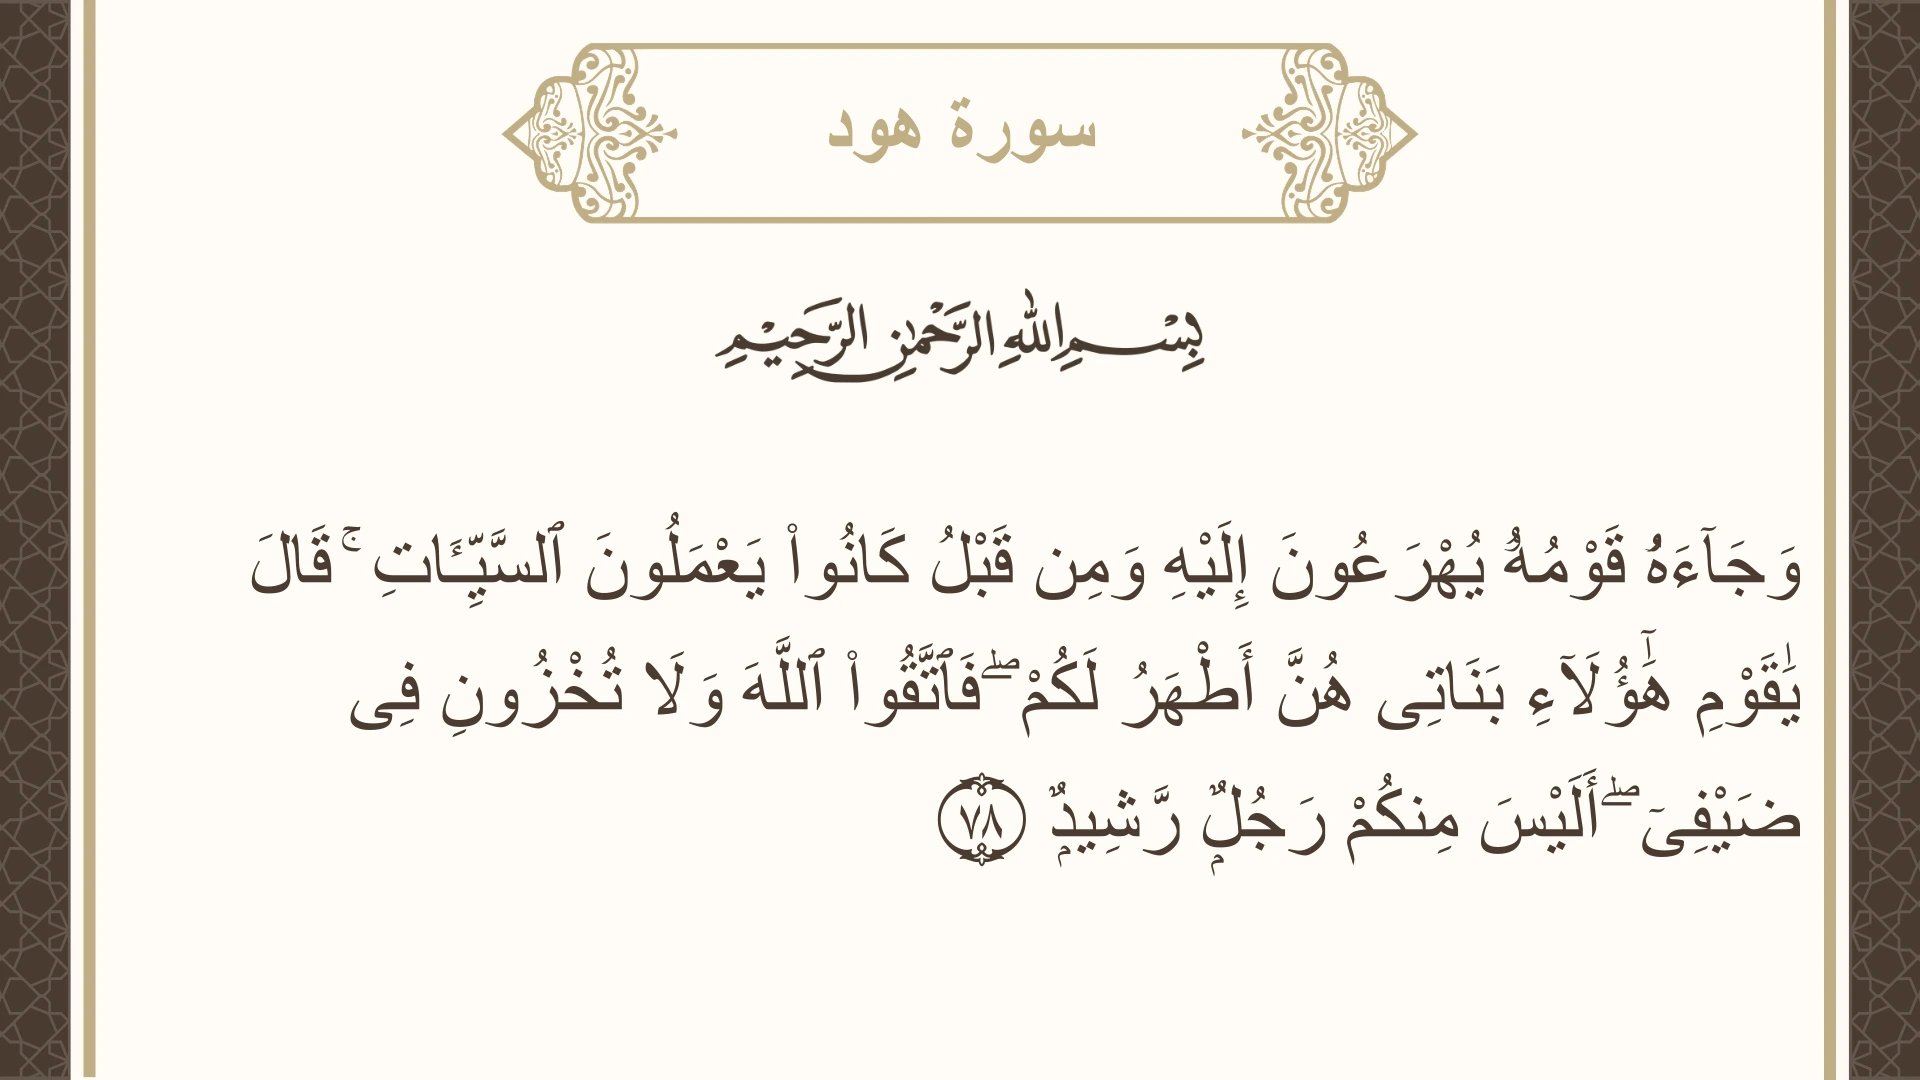 سورة هود
بِسْمِ اللهِ الرَّحْمٰنِ الرَّحِيْمِ
وَجَآءَهُۥ قَوْمُهُۥ يُهْرَعُونَ إِلَيْهِ وَمِن قَبْلُ كَانُوا۟ يَعْمَلُونَ ٱلسَّيِّـَٔاتِ ۚ قَالَ
يَٰقَوْمِ هَٰٓؤُلَآءِ بَنَاتِى هُنَّ أَطْهَرُ لَكُمْ ۖ فَٱتَّقُوا۟ ٱللَّهَ وَلَا تُخْزُونِ فِى
ضَيْفِىٓ ۖ أَلَيْسَ مِنكُمْ رَجُلٌۭ رَّشِيدٌۭ ٧٨